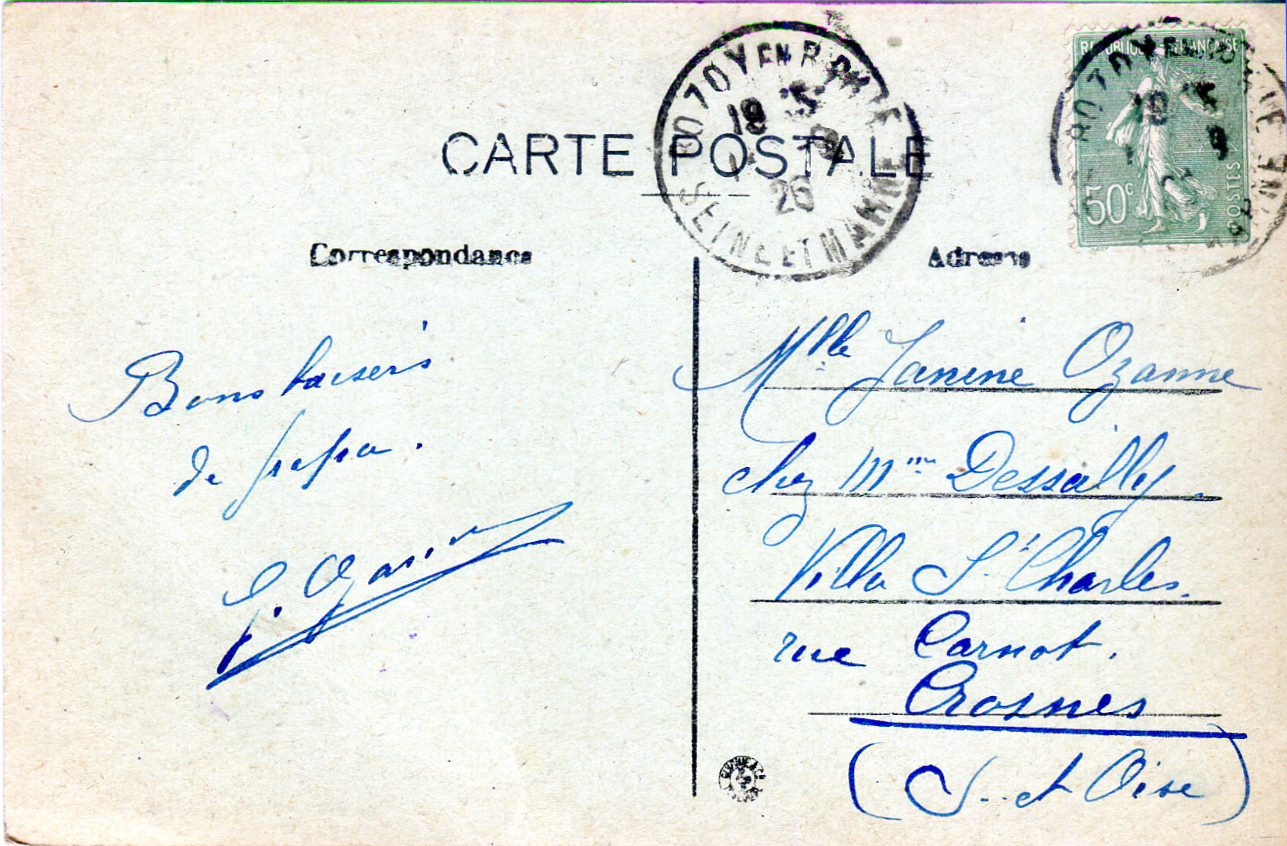 CARTE POSTALE
ROZOY EN BRIE
18
26
SEINE ET MARNE
REPUBLIQUE FRANÇAISE
50c
POSTES
Correspondance
Adresse
Bons baisers
de papa.
Mlle Janine Ozanne
chez Mme Dessailly.
Villa St Charles.
rue Carnot.
Crosnes
(S. et Oise)